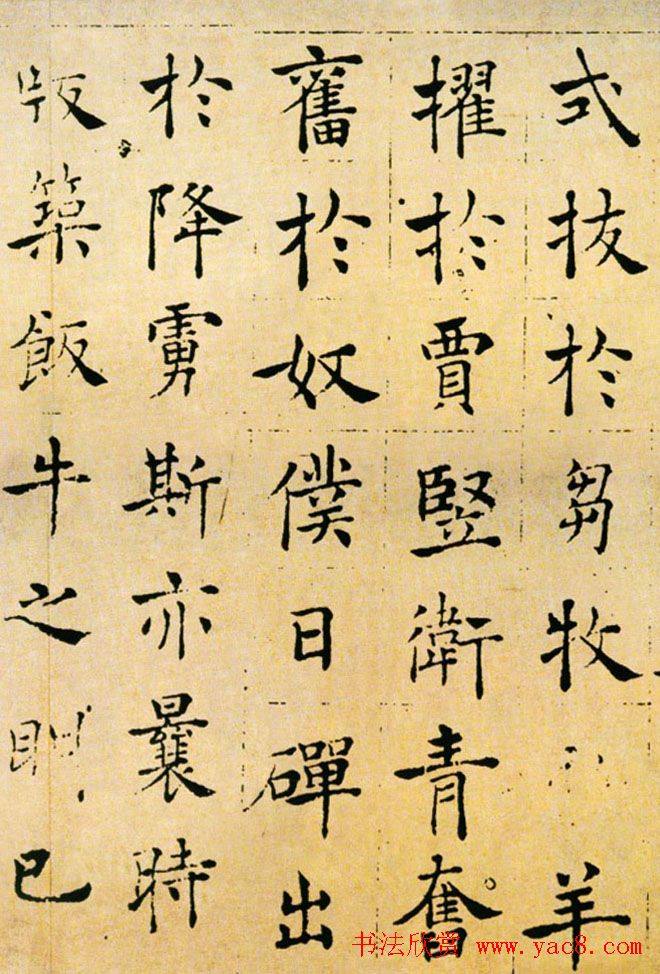 式拔於芻牧羊
擢於賈竪衛青奮
奮於奴僕日磾出
於降虜斯亦曩時
版築飯牛之已
书法欣赏 www.yac8.com